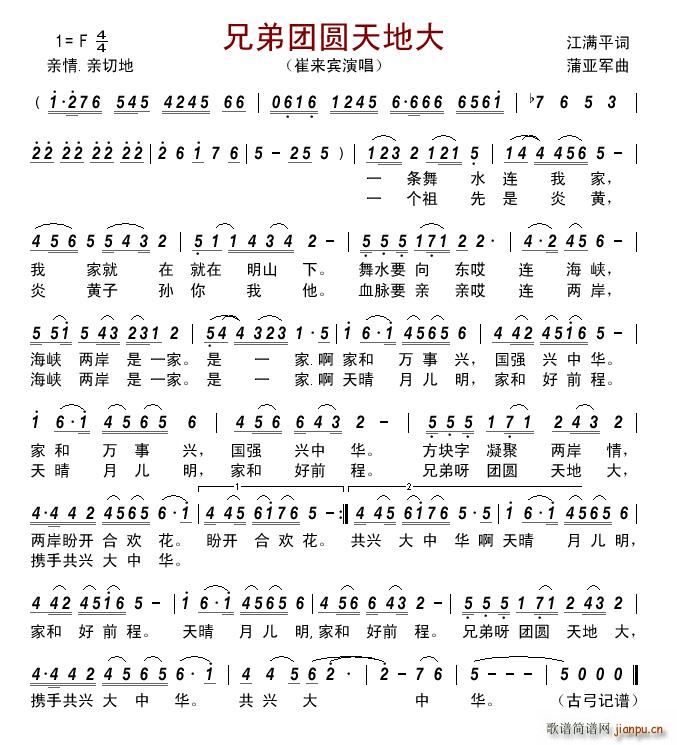 兄弟团圆天地大
1= F 4/4
江满平词
亲情.亲切地
（崔来宾演唱）
蒲亚军曲
( 1·276 545 4245 66 | 0616 1653 6·666 6561 | ♭7 6 5 3 |
22 22 22 22 | 2 6 1 7 6 | 5 - 2 5 5 ) | 123 2 121 5 | 14 4 456 5 - |
一条舞 水 连 我 家，
一个祖 先 是 炎 黄，
4 56 5 5 43 2 | 5 1 1 4 3 4 2 - | 5 5 5 171 2 2· | 4·2 45 5 - |
我 家就 在 就在 明山 下。 舞水要 向 东哎 连 海峡，
炎 黄子 孙 你 我 他。 血脉要 亲 亲哎 连 两岸，
5 51 5 43 231 2 | 54 4 323 1·5 | 1 6·1 4565 6 | 4 42 4516 5 - |
海峡 两岸 是 一家。是 一 家.啊 家和 万 事 兴，国强 兴 中 华。
海峡 两岸 是 一家。是 一 家.啊 天晴 月 儿 明，家和 好 前 程。
1 6·1 4565 6 | 4 56 643 2 - | 5 5 5 171 243 2 |
家 和 万 事 兴，国强 兴中 华。 方块字 凝聚 两岸 情，
天 晴 月 儿 明，家和 好前 程。 兄弟呀 团圆 天地 大，
4·4 42 4565 6·1 | 4 45 6176 5 - :‖ 4 45 6176 5·5 | 1 6·1 4565 6 |
1
2
两岸盼开 合 欢 花。 盼开 合 欢 花。 共兴 大 中 华 啊 天晴 月 儿 明，
携手共兴 大 中 华。
4 42 4516 5 - | 1 6·1 4565 6 | 4 56 643 2 - | 5 5 5 171 243 2 |
家和 好 前程。 天晴 月 儿 明,家和 好前 程。 兄弟呀 团圆 天地 大，
4·4 42 4565 6· | 4 45 6 2· | 2· 1 7 6 | 5 - - 0 ‖
携手共兴 大 中 华。 共 兴 大 中 华。 （古弓记谱）
歌谱简谱网
jianpu.cn